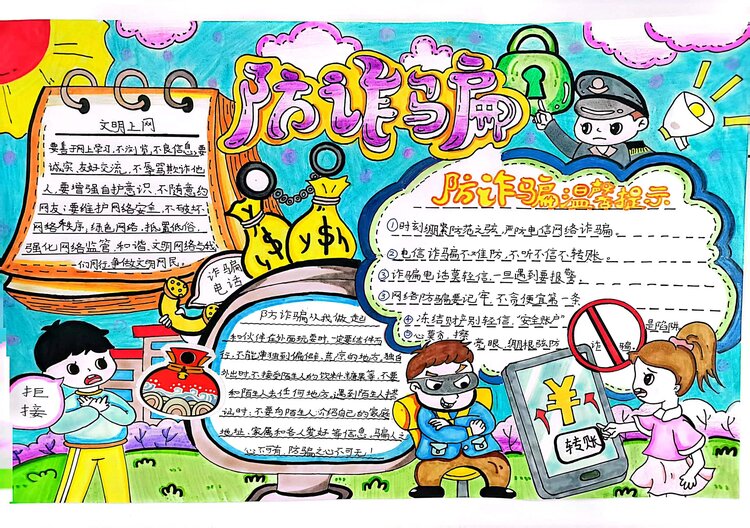 防诈骗
文明上网
要善于网上学习,不浏览不良信息;要
诚实友好交流,不辱骂欺诈他
人;要增强自护意识,不随意约
网友;要维护网络安全,不破坏
网络秩序,绿色网络,抵制低俗,
强化网络监管,和谐文明网络与我
们同行,争做文明网民。
防诈骗温馨提示
①时刻绷紧防范之弦,严防电信网络诈骗。
②电信诈骗不难防,不听不信不转账。
③诈骗电话莫轻信,一旦遇到要报警。
④冻结财产别轻信,"安全账户"是陷阱
诈骗
电话
$
¥
¥
$
防诈骗从我做起
和伙伴在外面玩耍时,一定要结伴而
行,不能单独到偏僻、荒凉的地方,独自
外出时,不接受陌生人的饮料、糖果等,不要
和陌生人去任何地方,遇到陌生人搭
讪时,不要向陌生人介绍自己的家庭
地址、家属和各人爱好等信息,骗人之
心不可有,防骗之心不可无!
拒
接
¥
转账